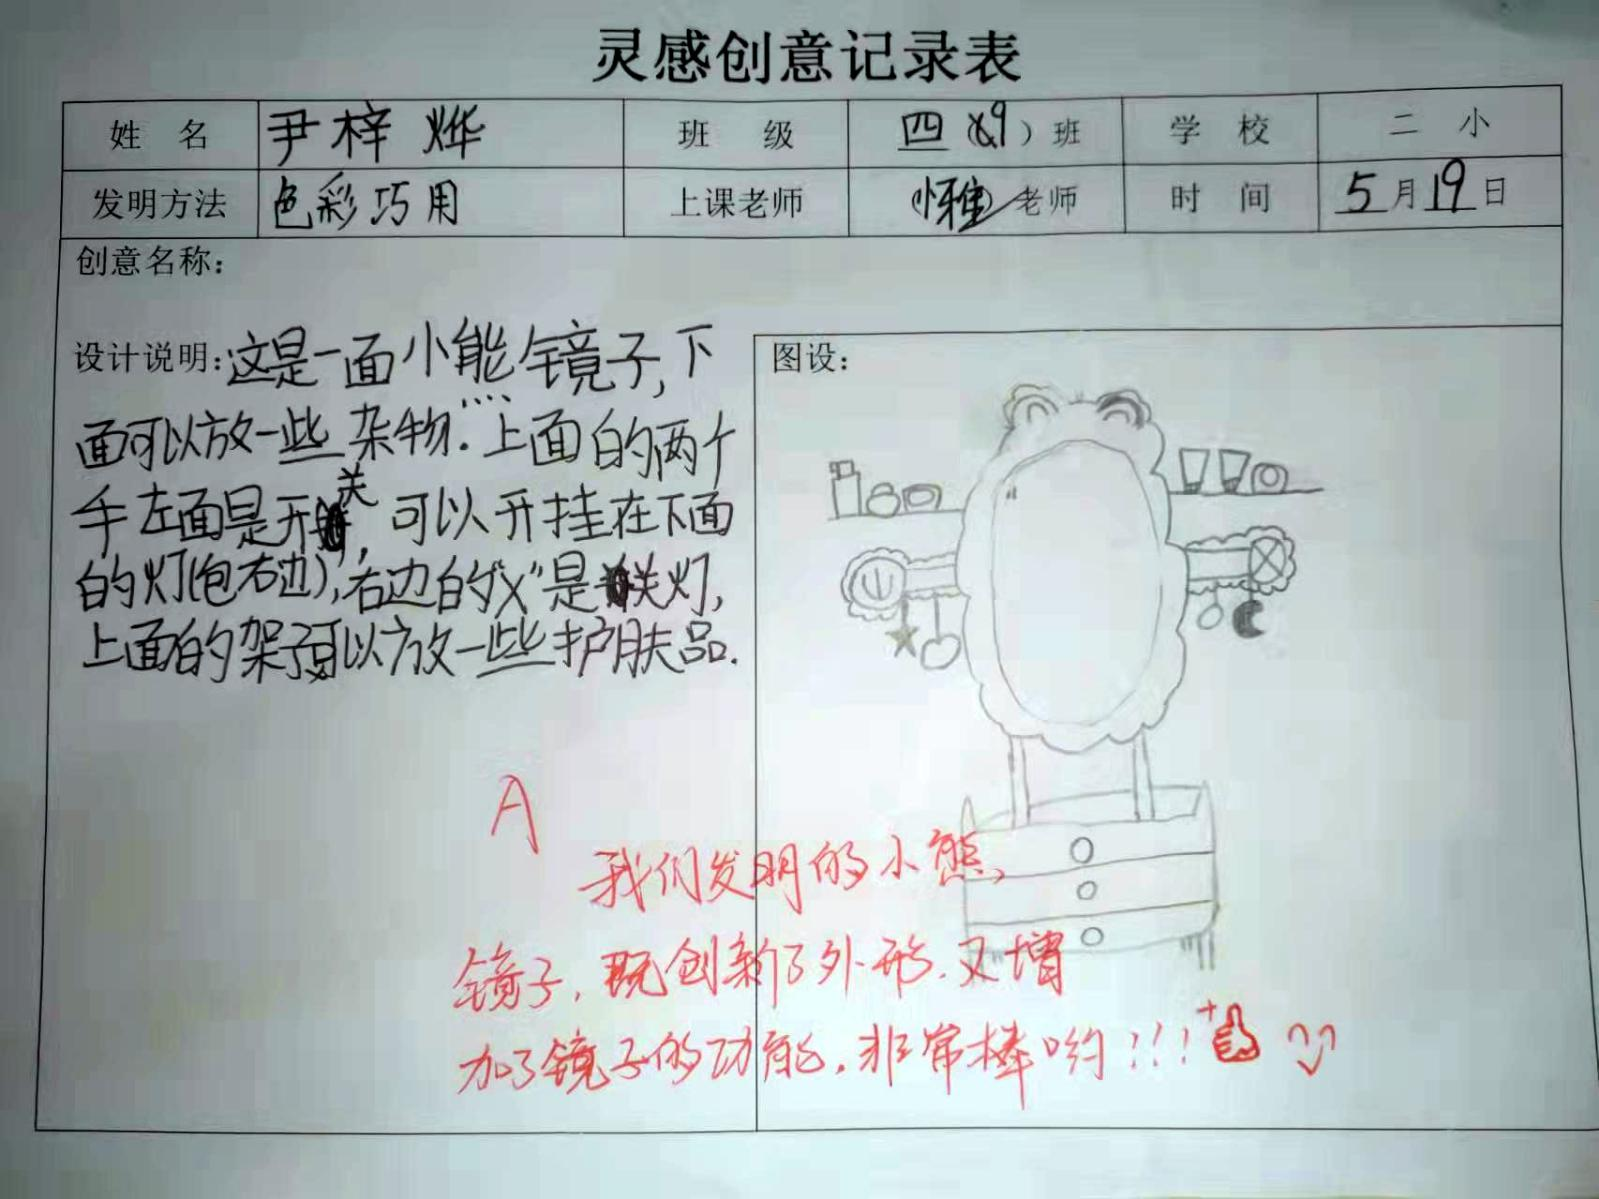 灵感创意记录表
姓 名 尹梓烨 班 级 四（9）班 学 校 二 小
发明方法 色彩巧用 上课老师 雅老师 时 间 5月19日
创意名称：
设计说明：这是一面小能镜子,下
面可以放一些杂物.上面的两个
手左面是开关,可以开挂在下面
的灯(包右边),右边的"X"是关灯,
上面的架子可以放一些护肤品.
图设：
A
我们发明的小熊
镜子,既创新了外形.又增
加了镜子的功能,非常棒哟!!!